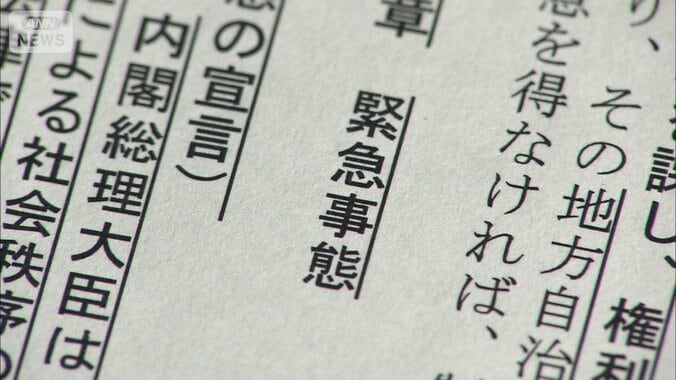 課し、権利
り、その地方自治
を得なければ、
章 緊急事態
の宣言）
内閣総理大臣は
による社会秩序の
ANN NEWS